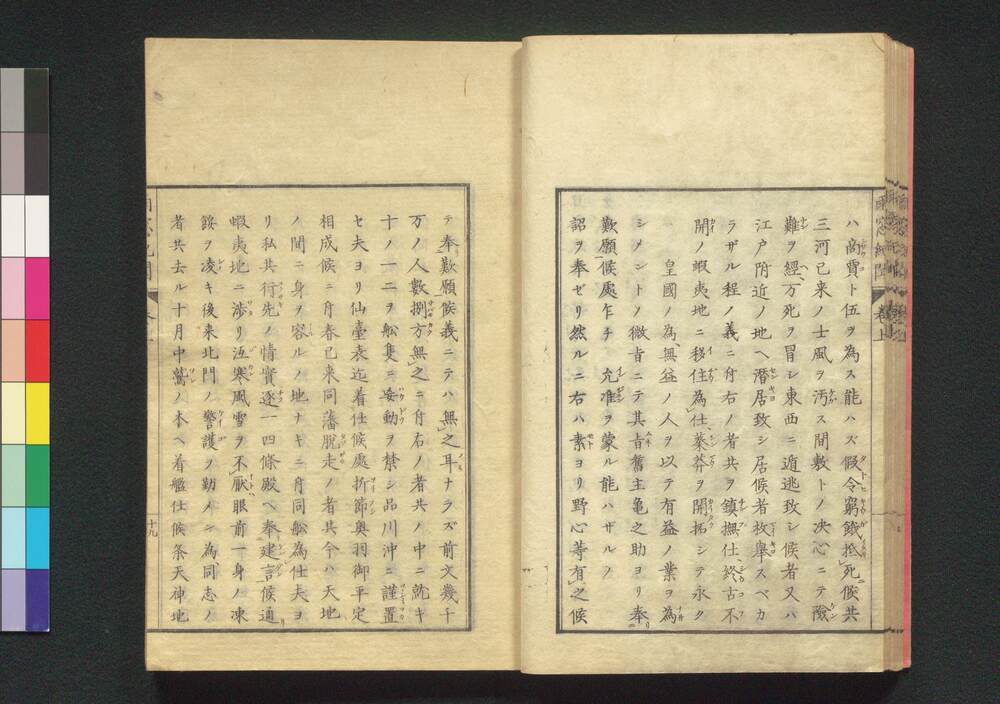 ハ商賈ト伍ヲ為ス能ハズ假令窮餓抵死候共
三河已来ノ士風ヲ汚ス間敷トノ决心ニテ險
難ヲ經万死ヲ冒シ東西ニ遁逃致シ候者又ハ
江戸附近ノ地ヘ潛居致シ居候者枚舉スベカ
ラザル程ノ義ニ付右ノ者共ヲ鎮撫仕終古不
開ノ蝦夷地ニ移住為仕蓁莽ヲ開拓シテ永ク
皇國ノ為無益ノ人ヲ以テ有益ノ業ヲ為
シメントノ微旨ニテ其旨舊主亀之助ヨリ奉
歎願候處乍チ允准ヲ蒙ル能ハザルノ
詔ヲ奉ゼリ然ルニ右ハ素ヨリ野心等有之候
テ奉歎願候義ニテハ無之耳ナラズ前文幾千
万ノ人數捌方無之ニ付右ノ者共ノ中ニ就キ
十ノ一二ヲ舩隻ニ妄動ヲ禁シ品川沖ニ謹置
セ夫ヨリ仙臺表迄着仕候處折節奥羽御平定
相成候ニ付春已来同藩脱走ノ者共今ハ天地
ノ間ニ身ヲ容ルノ地ナキニ付同舩為仕夫ヨ
リ私共行先ノ情實逐一四條殿ヘ奉建言候通
蝦夷地ニ渉リ沍寒風雪ヲ不厭眼前一身ノ凍
餒ヲ凌キ後来北門ノ警護ヲ勤メン為同志ノ
者共去ル十月中鷲ノ木ヘ着艦仕候条天神地
十九